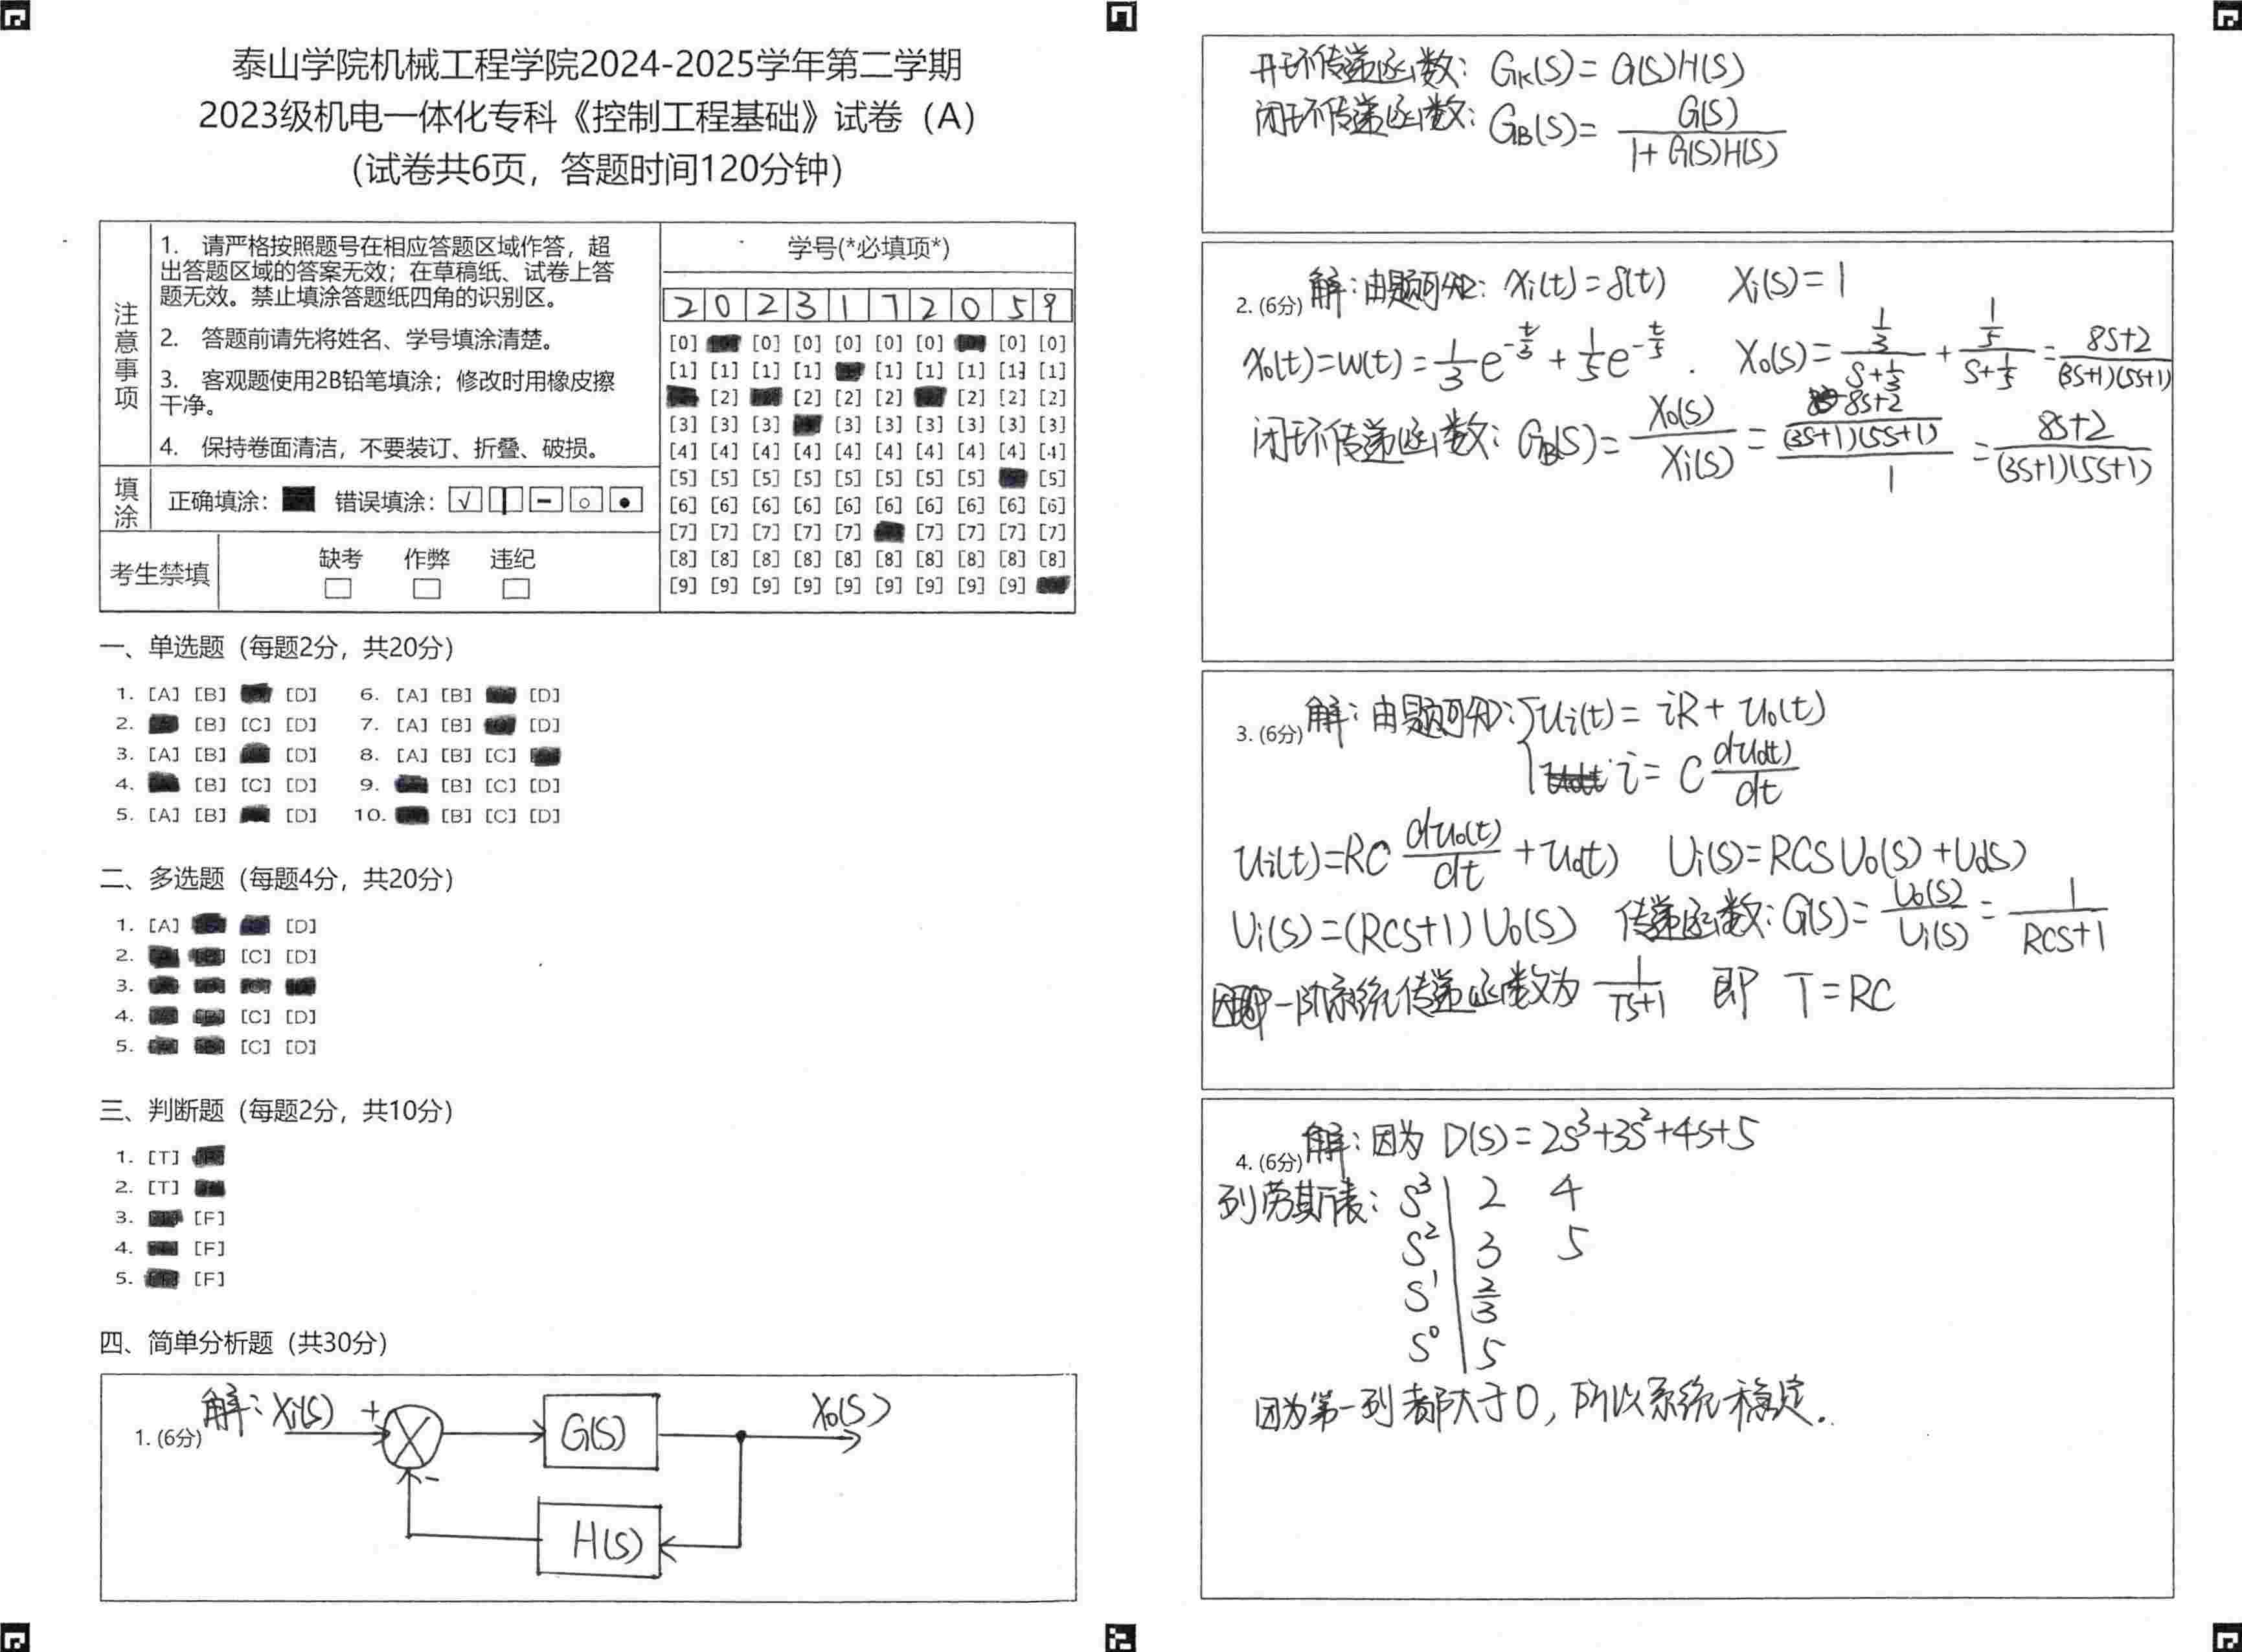 泰山学院机械工程学院2024-2025学年第二学期
2023级机电一体化专科《控制工程基础》试卷（A）
（试卷共6页，答题时间120分钟）
注意事项
1. 请严格按照题号在相应答题区域作答，超
出答题区域的答案无效；在草稿纸、试卷上答
题无效。禁止填涂答题纸四角的识别区。
2. 答题前请先将姓名、学号填涂清楚。
3. 客观题使用2B铅笔填涂；修改时用橡皮擦
干净。
4. 保持卷面清洁，不要装订、折叠、破损。
填涂 正确填涂： 错误填涂：
考生禁填 缺考 作弊 违纪
学号(*必填项*)
2 0 2 3 1 7 2 0 5 9
[0] [0] [0] [0] [0] [0] [0] [0]
[1] [1] [1] [1] [1] [1] [1] [1] [1]
[2] [2] [2] [2] [2] [2] [2]
[3] [3] [3] [3] [3] [3] [3] [3] [3]
[4] [4] [4] [4] [4] [4] [4] [4] [4] [4]
[5] [5] [5] [5] [5] [5] [5] [5] [5]
[6] [6] [6] [6] [6] [6] [6] [6] [6] [6]
[7] [7] [7] [7] [7] [7] [7] [7] [7]
[8] [8] [8] [8] [8] [8] [8] [8] [8] [8]
[9] [9] [9] [9] [9] [9] [9] [9] [9]
一、单选题（每题2分，共20分）
1. [A] [B] [D] 6. [A] [B] [D]
2. [B] [C] [D] 7. [A] [B] [D]
3. [A] [B] [D] 8. [A] [B] [C]
4. [B] [C] [D] 9. [B] [C] [D]
5. [A] [B] [D] 10. [B] [C] [D]
二、多选题（每题4分，共20分）
1. [A] [D]
2. [C] [D]
3.
4. [C] [D]
5. [C] [D]
三、判断题（每题2分，共10分）
1. [T]
2. [T]
3. [F]
4. [F]
5. [F]
四、简单分析题（共30分）
1. (6分) 解：Xi(S) + - G(S) X₀(S)
H(S)
开环传递函数：G_K(S)=G(S)H(S)
闭环传递函数：G_B(S)=G(S)/(1+G(S)H(S))
2. (6分) 解：由题可知：xi(t)=δ(t) Xi(S)=1
x₀(t)=w(t)=1/3 e^(-t/3)+1/5 e^(-t/5). X₀(S)=(1/3)/(S+1/3)+(1/5)/(S+1/5)=(8S+2)/((3S+1)(5S+1))
闭环传递函数：G_B(S)=X₀(S)/Xi(S)=((8S+2)/((3S+1)(5S+1)))/1=(8S+2)/((3S+1)(5S+1))
3. (6分) 解：由题可知：{ui(t)=iR+u₀(t)
i=C du₀(t)/dt
ui(t)=RC du₀(t)/dt+u₀(t) Ui(S)=RCSU₀(S)+U₀(S)
Ui(S)=(RCS+1)U₀(S) 传递函数：G(S)=U₀(S)/Ui(S)=1/(RCS+1)
因一阶系统传递函数为 1/(TS+1) 即 T=RC
4. (6分) 解：因为 D(S)=2S³+3S²+4S+5
列劳斯表：S³ | 2 4
S² | 3 5
S¹ | 2/3
S⁰ | 5
因为第一列都大于0，所以系统稳定.